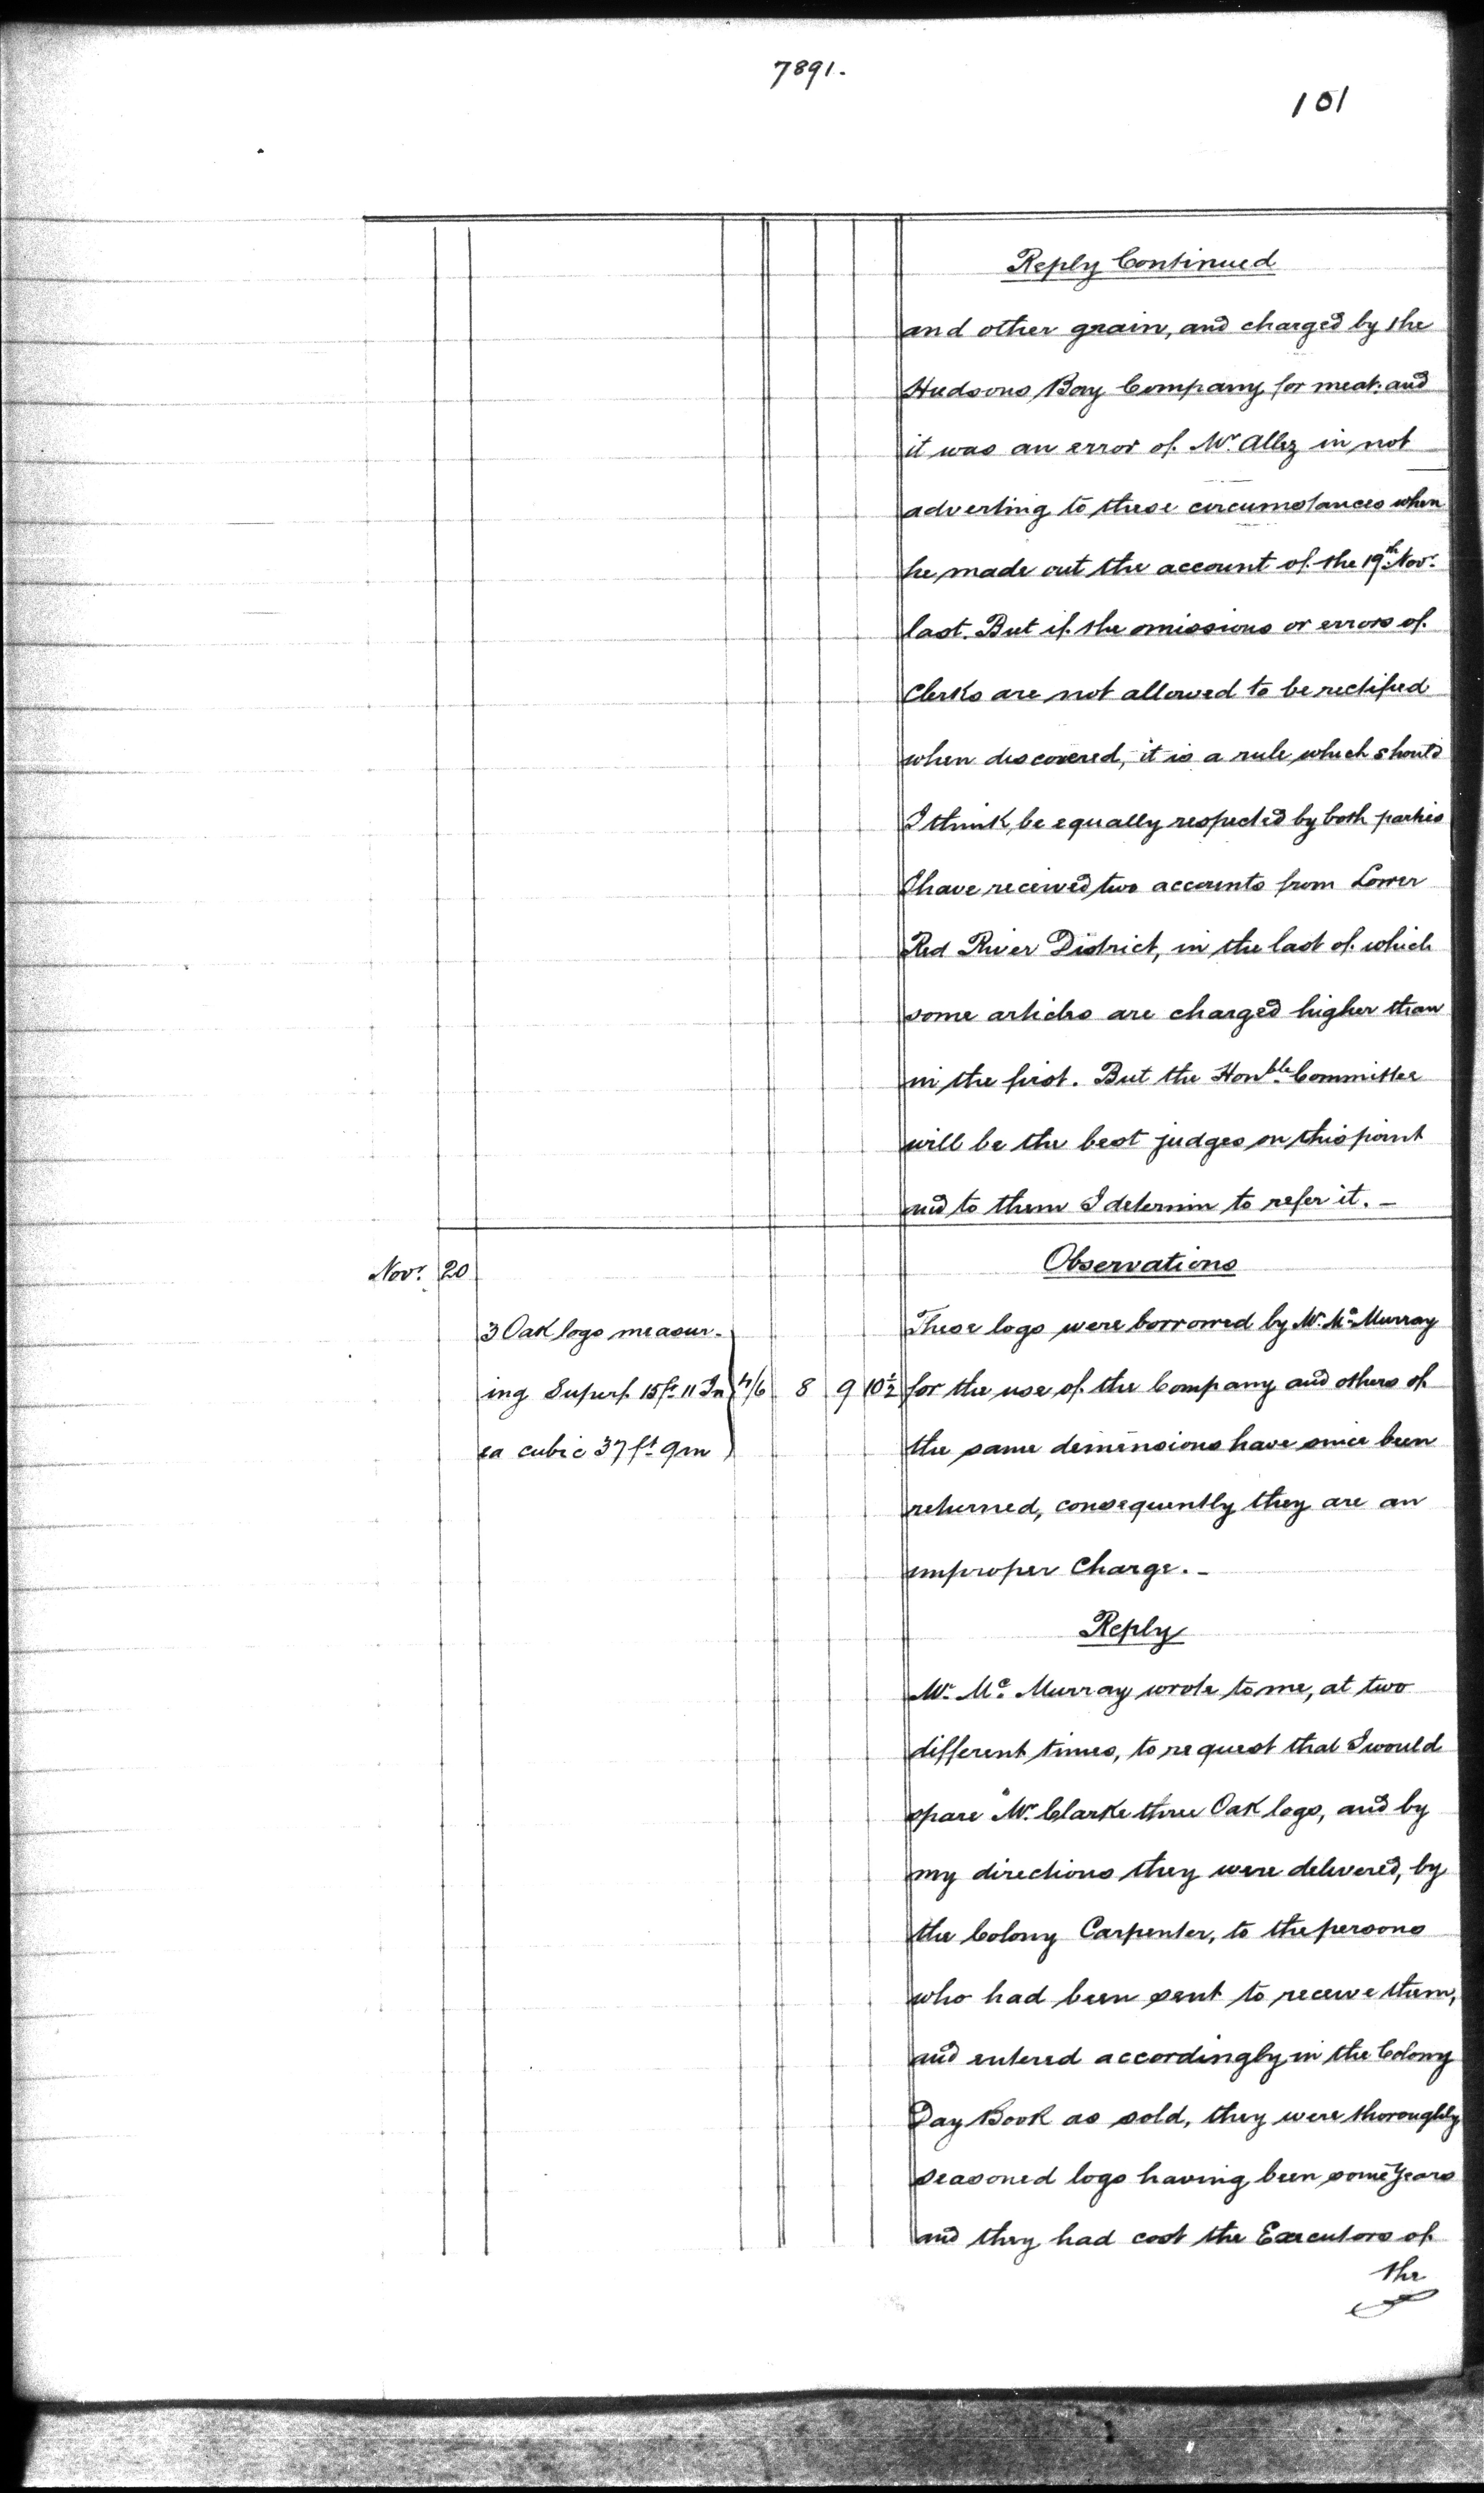 7891.
101
Reply Continued
and other grain, and charged by the
Hudsons Bay Company for meat: and
it was an error of Mr. Allez in not
adverting to these circumstances when
he made out the account of the 19th Novr.
last. But if the omissions or errors of
Clerks are not allowed to be rectified
when discovered, it is a rule which should
I think, be equally respected by both parties
I have received two accounts from Lower
Red River District, in the last of which
some articles are charged higher than
in the first. But the Honble. Committee
will be the best judges on this point
and to them I determin to refer it. –
Novr. 20
Observations
3 Oak logs measur-
These logs were borrowed by Mr. Mc Murray
ing Superf. 15ft. 11 In 4/6 8 9 10½ for the use of the Company and others of
ea cubic 37 ft. 9 in
the same demensions have since been
returned, consequently they are an
improper Charge. –
Reply
Mr. Mc. Murray wrote to me, at two
different times, to request that I would
spare "Mr. Clarke three Oak logs, and by
my directions they were delivered, by
the Colony Carpenter, to the persons
who had been sent to receive them,
and entered accordingly in the Colony
Day Book as sold, they were thoroughly
seasoned logs having been some years
and they had cost the Executors of
the